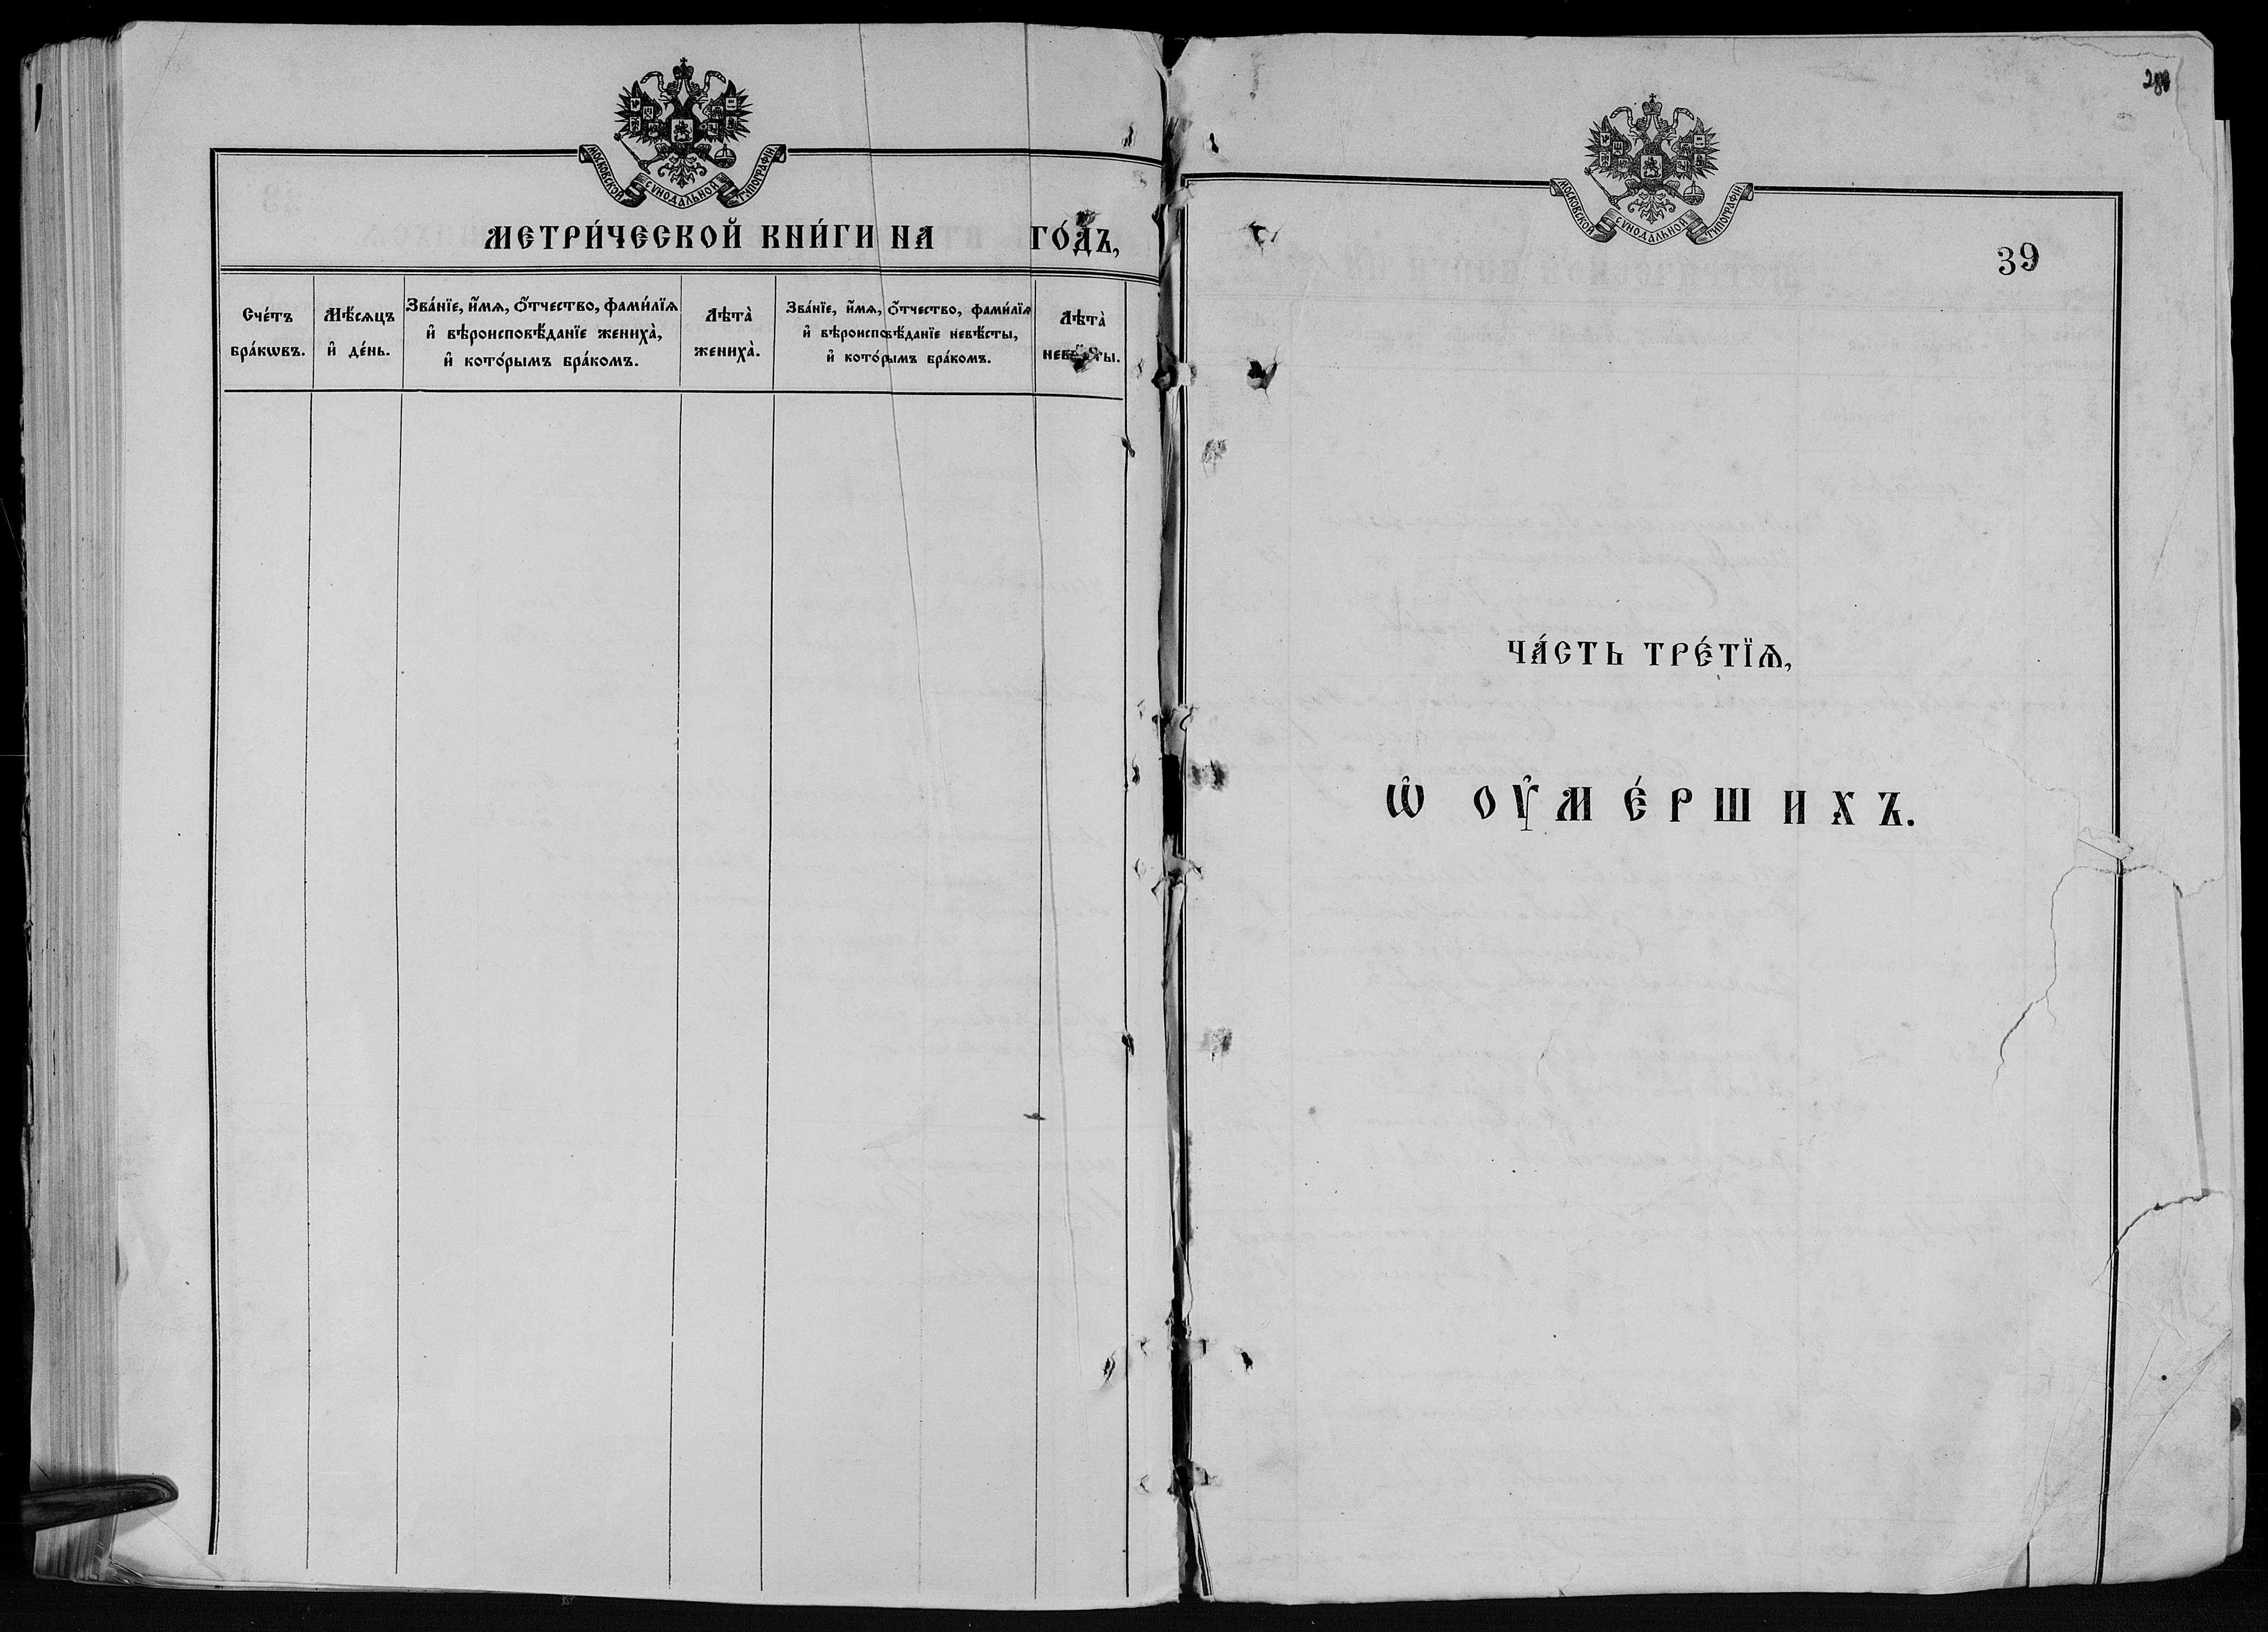 МОСКОВСКОЙ СѴНОДАЛЬНОЙ ТИПОГРАФІИ
МЕТРИ́ЧЕСКОЙ КНИ́ГИ НА ГО́ДЪ,
Сче́тъ бра́кѡвъ.
Мѣ́сѧцъ и҆ де́нь.
Зва́нїе, и҆́мѧ, ѻ҆́тчество, фами́лїѧ
и҆ вѣроисповѣ́данїе женихა̀,
и҆ кото́рымъ бра́комъ.
Лѣта̀
жениха̀.
Зва́нїе, и҆́мѧ, ѻ҆́тчество, фами́лїѧ
и҆ вѣроисповѣ́данїе невѣ́сты,
и҆ кото́рымъ бра́комъ.
Лѣта̀
невѣ́сты.
МОСКОВСКОЙ СѴНОДАЛЬНОЙ ТИПОГРАФІИ
39
ЧА́СТЬ ТРЕ́ТЇѦ,
Ѡ҆ ОУ҆МЕ́РШИХЪ.